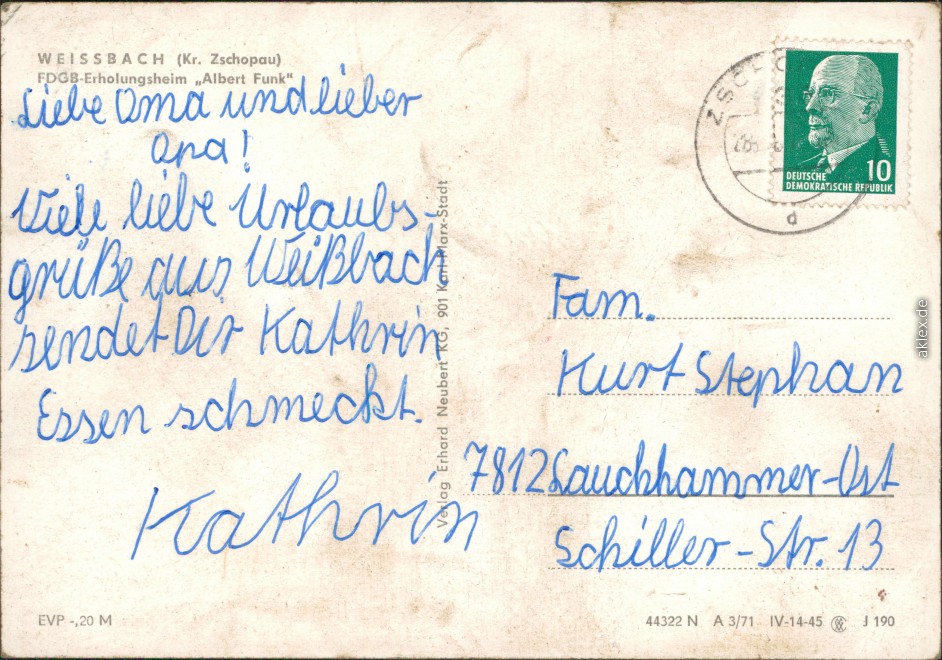 WEISSBACH (Kr. Zschopau)
FDGB-Erholungsheim „Albert Funk“
Liebe Oma und lieber
Opa!
Viele liebe Urlaubs-
grüße aus Weißbach
sendet Dir Kathrin
Essen schmeckt.
Kathrin
EVP -,20 M
Verlag Erhard Neubert KG, 901 Karl-Marx-Stadt
ZSCHO
d
10
DEUTSCHE
DEMOKRATISCHE REPUBLIK
Fam.
Kurt Stephan
7812 Lauchhammer-Ost
Schiller-Str. 13
44322 N A 3/71 IV-14-45 J 190
aklex.de